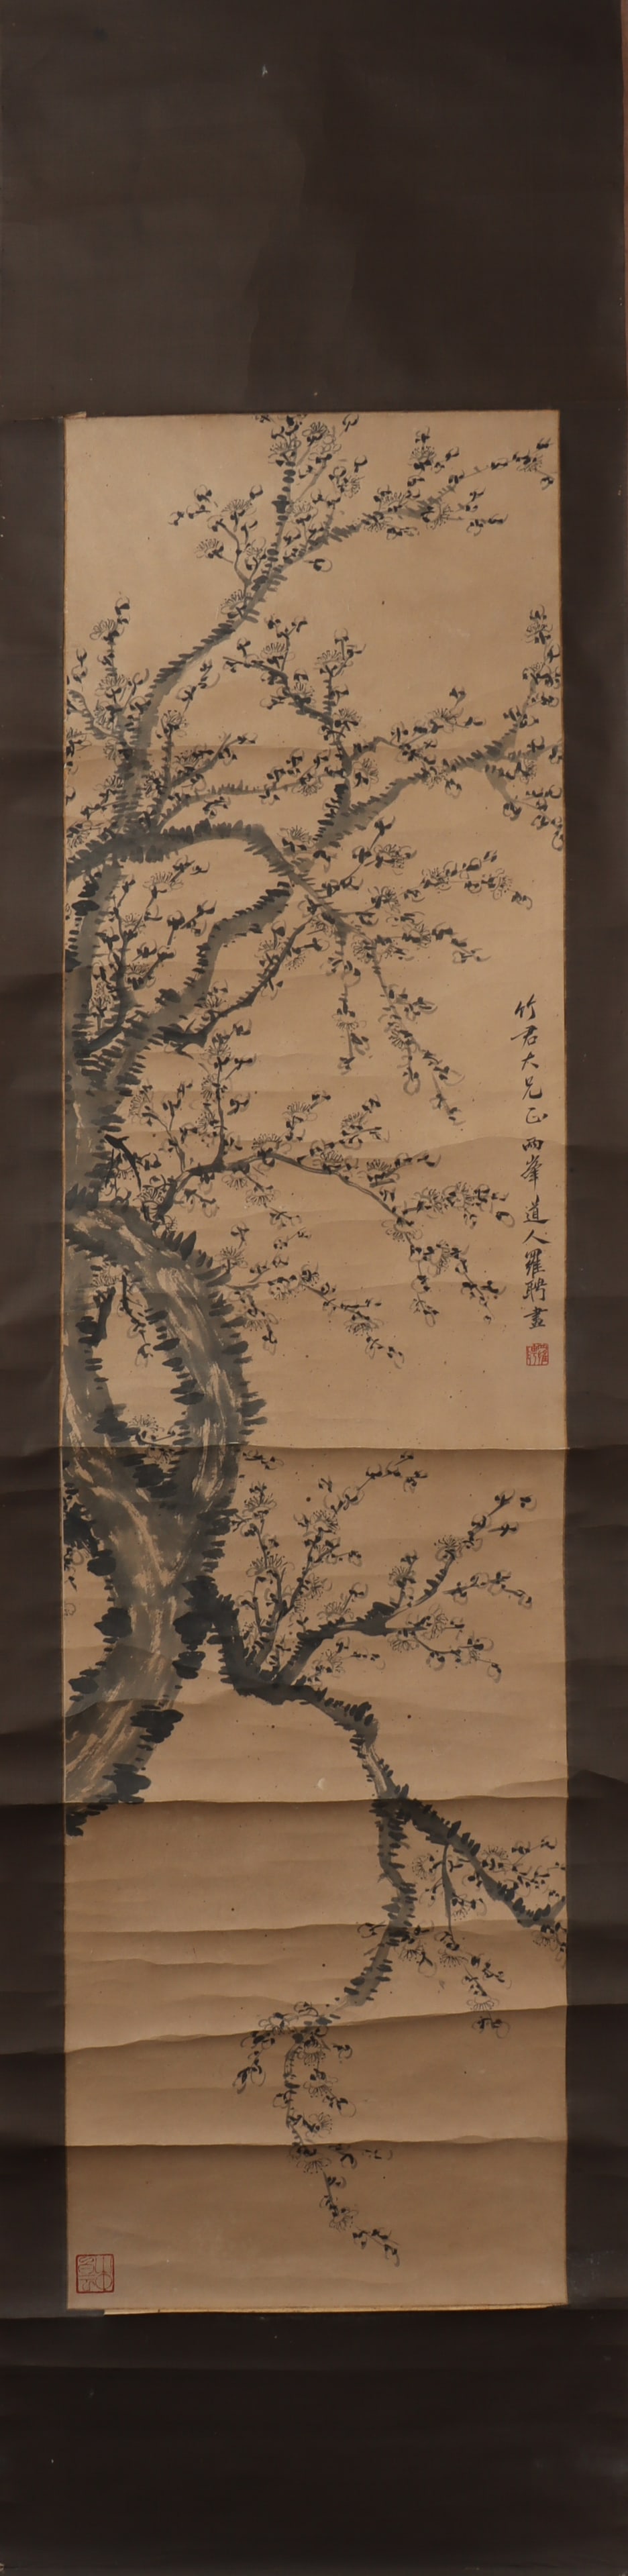 竹君大兄正兩峯道人羅聘畫